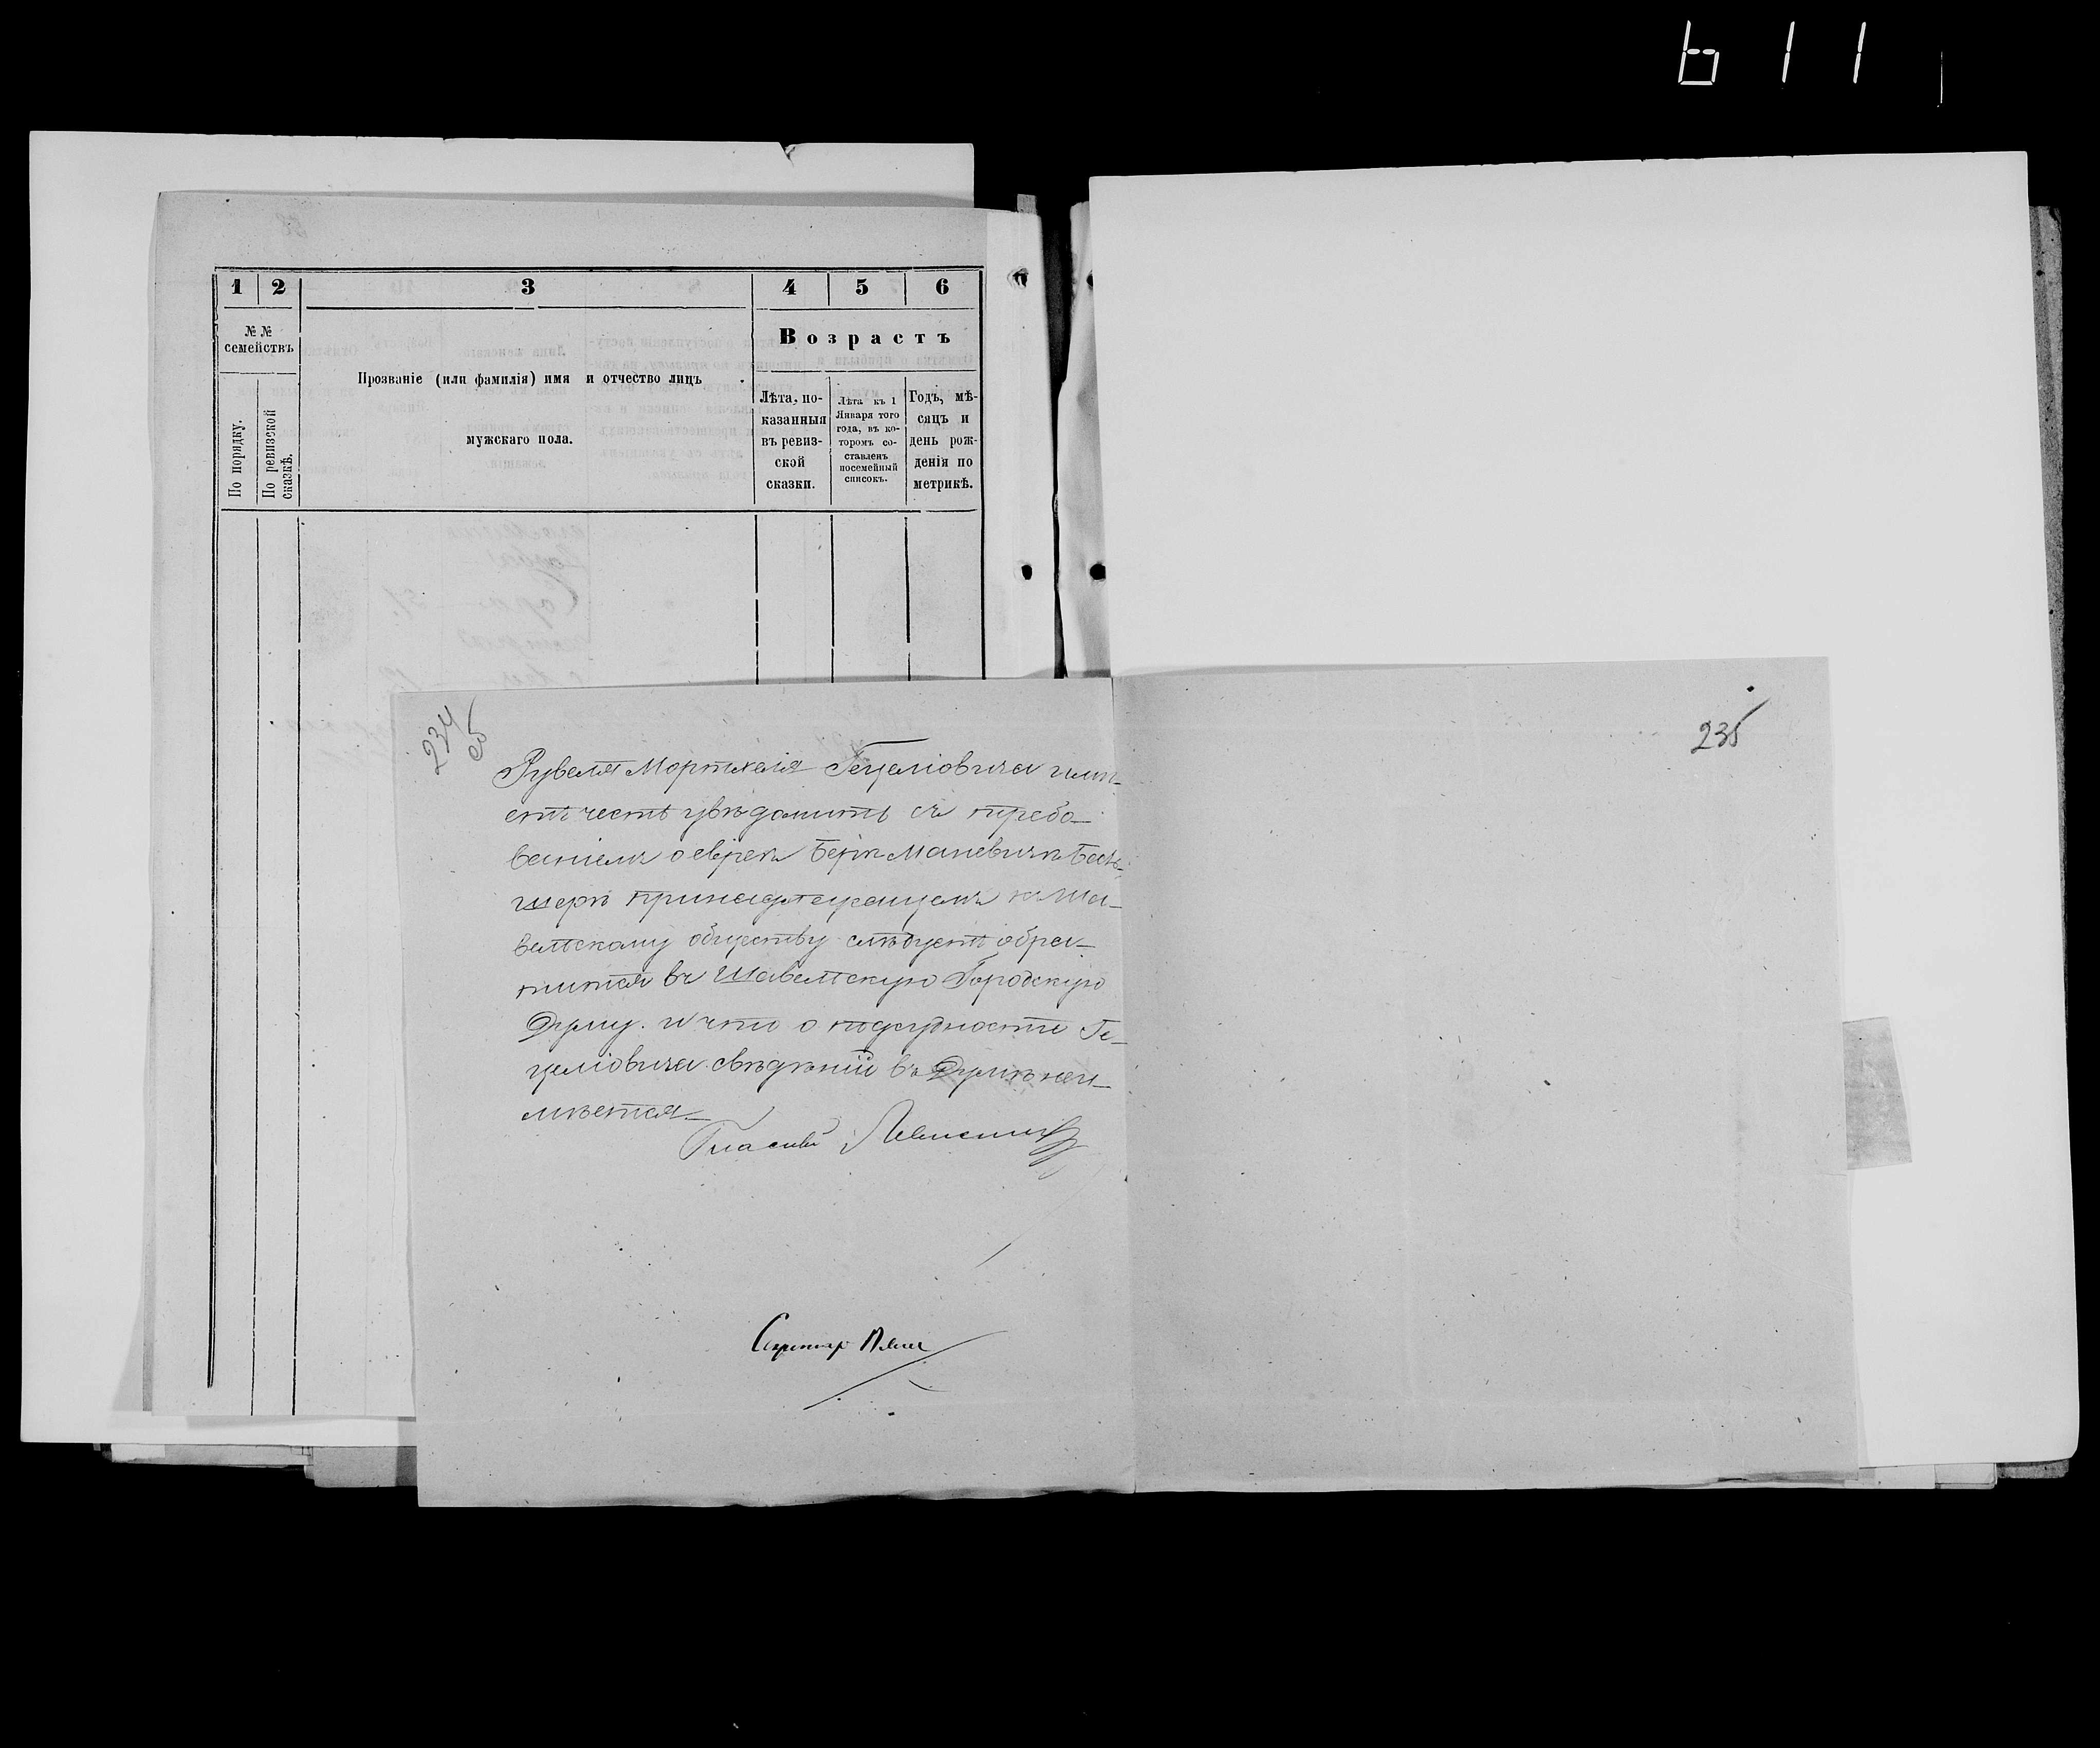 611
1 2 3 4 5 6
№ № семействъ
По порядку.
По ревизской сказкѣ.
Прозваніе (или фамилія) имя и отчество лицъ
мужскаго пола.
Возрастъ
Лѣта, по-
казанныя
въ ревиз-
ской
сказки.
Лѣта къ 1
Января того
года, въ ко-
торомъ со-
ставленъ
посемейный
списокъ.
Годъ, мѣ-
сяцъ и
день рож-
денія по
метрикѣ.
234
об
Рувеля Мортхеля Гецеліовича имѣ-
етъ честь увѣдомить съ требо-
ваніемъ о евреѣ Беркѣ Маневичѣ
принадлежащемъ къ Ша-
вельскому обществу слѣдуетъ обра-
тится въ Шавельскую Городскую
Думу. и что о подсудности Ге-
целіовича свѣдѣній въ Думѣ неи-
мѣется.
Гласный
Секретарь
235